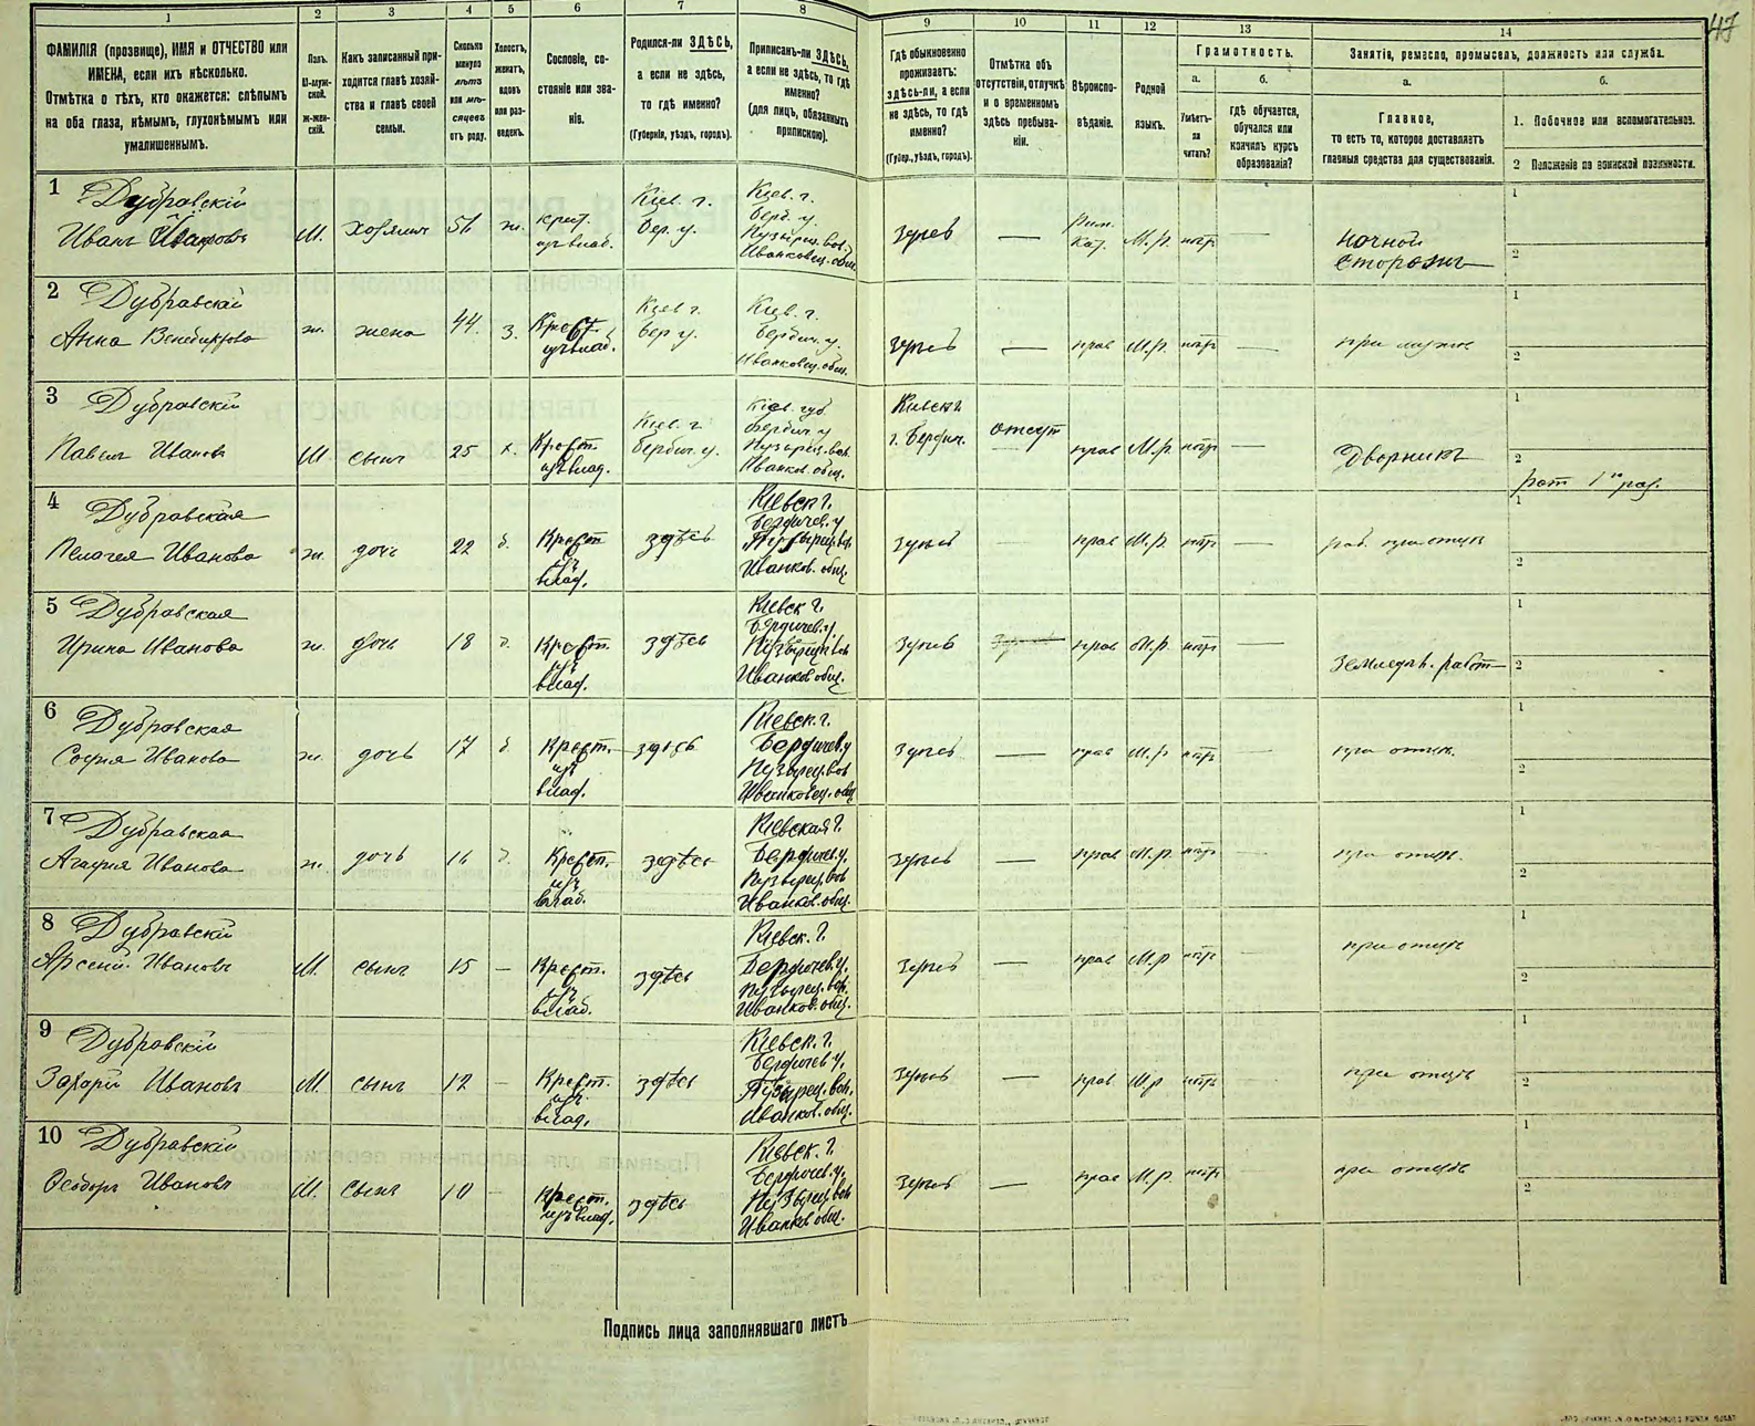 47
1
2
3
4
5
6
7
8
9
10
11
12
13
14
ФАМИЛІЯ (прозвище), ИМЯ и ОТЧЕСТВО или
ИМЕНА, если ихъ нѣсколько.
Отмѣтка о тѣхъ, кто окажется: слѣпымъ
на оба глаза, нѣмымъ, глухонѣмымъ или
умалишеннымъ.
Полъ.
М-муж-
ской.
ж-жен-
скій.
Какъ записанный при-
ходится главѣ хозяй-
ства и главѣ своей
семьи.
Сколько
минуло
лѣтъ
или мѣ-
сяцевъ
отъ роду.
Холостъ,
женатъ,
вдовъ
или раз-
веденъ.
Сословіе, со-
стояніе или зва-
ніе.
Родился-ли ЗДѢСЬ,
а если не здѣсь,
то гдѣ именно?
(Губернія, уѣздъ, городъ).
Приписанъ-ли ЗДѢСЬ,
а если не здѣсь, то гдѣ
именно?
(для лицъ, обязанныхъ
припискою).
Гдѣ обыкновенно
проживаетъ:
здѣсь-ли, а если
не здѣсь, то гдѣ
именно?
(Губер., уѣздъ, городъ).
Отмѣтка объ
отсутствіи, отлучкѣ
и о временномъ
здѣсь пребыва-
ніи.
Вѣроиспо-
вѣданіе.
Родной
языкъ.
Грамотность.
а.
Умѣетъ-
ли
читать?
б.
гдѣ обучается,
обучался или
кончилъ курсъ
образованія?
Занятіе, ремесло, промыселъ, должность или служба.
а.
Главное,
то есть то, которое доставляетъ
главныя средства для существованія.
б.
1. Побочное или вспомогательное.
2 Положеніе по воинской повинности.
1 Дубравскій
Иванъ
М. хозяинъ 56 ж. крест.
изъ влад.
Кіев. г.
Бер. у.
Кіев. г.
Берд. у.
Пузырец. вол.
Иванковец. общ.
здѣсь — Рим.
Кат. М.р. нѣтъ —
ночной
сторожъ
1
2
2 Дубравскай
Анна
ж. жена 44. з. Крест.
изъ влад.
Кіев г.
Бер у.
Кіев. г.
Бердич. у.
Иванковец. общ.
здѣсь — прав М.р. нѣтъ — при мужѣ
1
2
3 Дубравскій
Павелъ Ивановъ
М сынъ 25 х. Крест.
изъ влад.
Кіев. г.
Бердич. у.
Кіев. губ.
Бердич. у
Пузырец. вол.
Иванков. общ.
Кіевск г.
г. Бердич. отсут прав М.р. нѣтъ — Дворникъ
1
2
рат 1го раз.
4 Дубравская
Пелагея Иванова
ж. дочь 22 д. Крест
изъ
влад.
здѣсь
Кіевск г.
Бердичев. у
Пузырец вол.
Иванков. общ.
здѣсь — прав М.р. нѣтъ —
1
2
5 Дубравская
Ирина Иванова
ж. дочь 18 д. Крест.
изъ
влад.
здѣсь
Кіевск г.
Бердичев. у.
Пузырец вол
Иванков общ.
здѣсь прав М.р. нѣтъ —
земледѣл. работ
1
2
6 Дубровская
Софія Иванова
ж. дочь 17 д. Крест.
изъ
влад.
здѣсь
Кіевск. г.
Бердичев. у
Пузырец. вол
Иванковец. общ
здѣсь — прав М.р нѣтъ — при отцѣ.
1
2
7 Дубравская
Агафія Иванова
ж. дочь 16 д. Крест.
изъ
влад.
здѣсь
Кіевская г.
Бердичев. у.
Пузырец. вол
Иванков. общ.
здѣсь — прав М.р. нѣтъ — при отцѣ.
1
2
8 Дубравскій
Арсеній Ивановъ
М. сынъ 15 — Крест.
изъ
влад.
здѣсь
Кіевск. г.
Бердичев. у.
Пузырец. вол.
Иванков. общ.
здѣсь — прав М.р нѣтъ — при отцѣ
1
2
9 Дубровскій
Захарій Ивановъ
М. сынъ 12 — Крест.
изъ
влад.
здѣсь
Кіевск. г.
Бердичев у.
Пузырец. вол.
Иванков. общ.
здѣсь — прав М.р нѣтъ при отцѣ
1
2
10 Дубравскій
Ѳеодоръ Ивановъ
М. сынъ 10 — Крест.
изъ влад.
здѣсь
Кіевск. г.
Бердичев. у.
Пузырец. вол
Иванков общ.
здѣсь — прав М.р. нѣтъ при отцѣ
1
2
Подпись лица заполнявшаго листъ